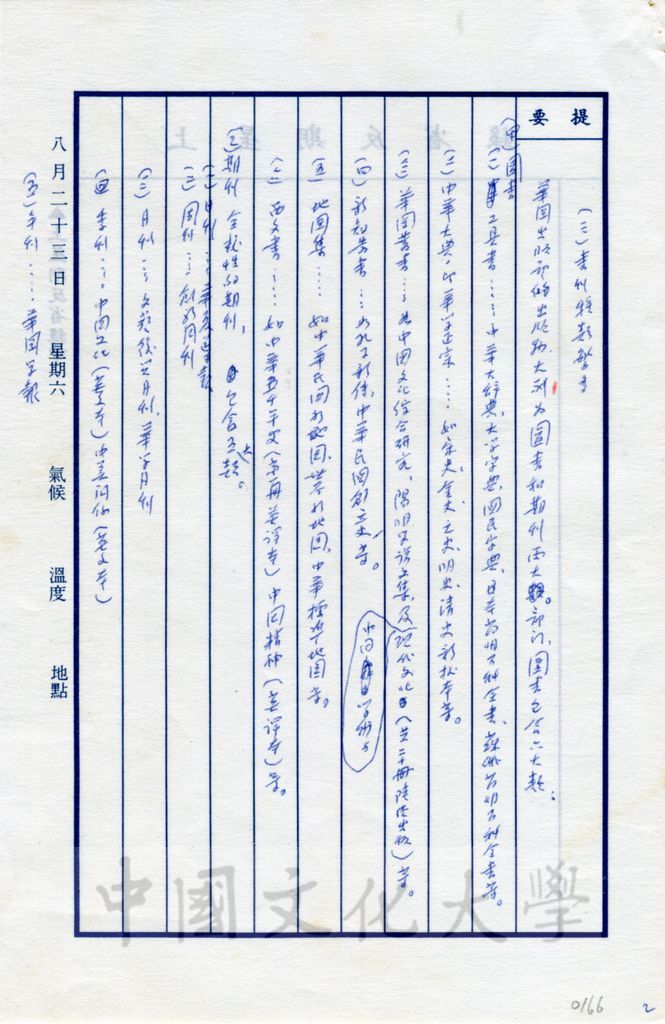 提要
(三)書刊種類繁多
華岡出版部的出版物,大別為圖書和期刊兩大部門,圖書包含六大類:
(甲)圖書
(一)工具書……中華大辭典,大學字典,國民字典,日本簡明百科全書,蘇俄簡明百科全書等。
(二)中華大典,即華學正宗……如宋史、金史、元史、明史、清史新校本等。
(三)華岡叢書……如中國文化綜合研究,陽明學論文集,及現代文化(共二十冊陸續出版)等。
中國學術與
(四)新知叢書……如孔子新傳,中華民國創立史等。
(五)地圖集……如中華民國新地圖,世界新地圖,中華標準地圖等。
(六)西文書……如中華五千年史(第一冊英譯本)中國精神(英譯本)等。
(乙)期刊 全校性的期刊,包含五大類。
(一)日刊……華夏導報
(二)周刊……創新周刊
(三)月刊……文藝復興月刊,華學月刊
(四)季刊……中國文化(英文本)中美關係(英文本)
(五)年刊……華岡學報
八月二十三日 星期六 氣候 溫度 地點
中國文化大學
0166
2